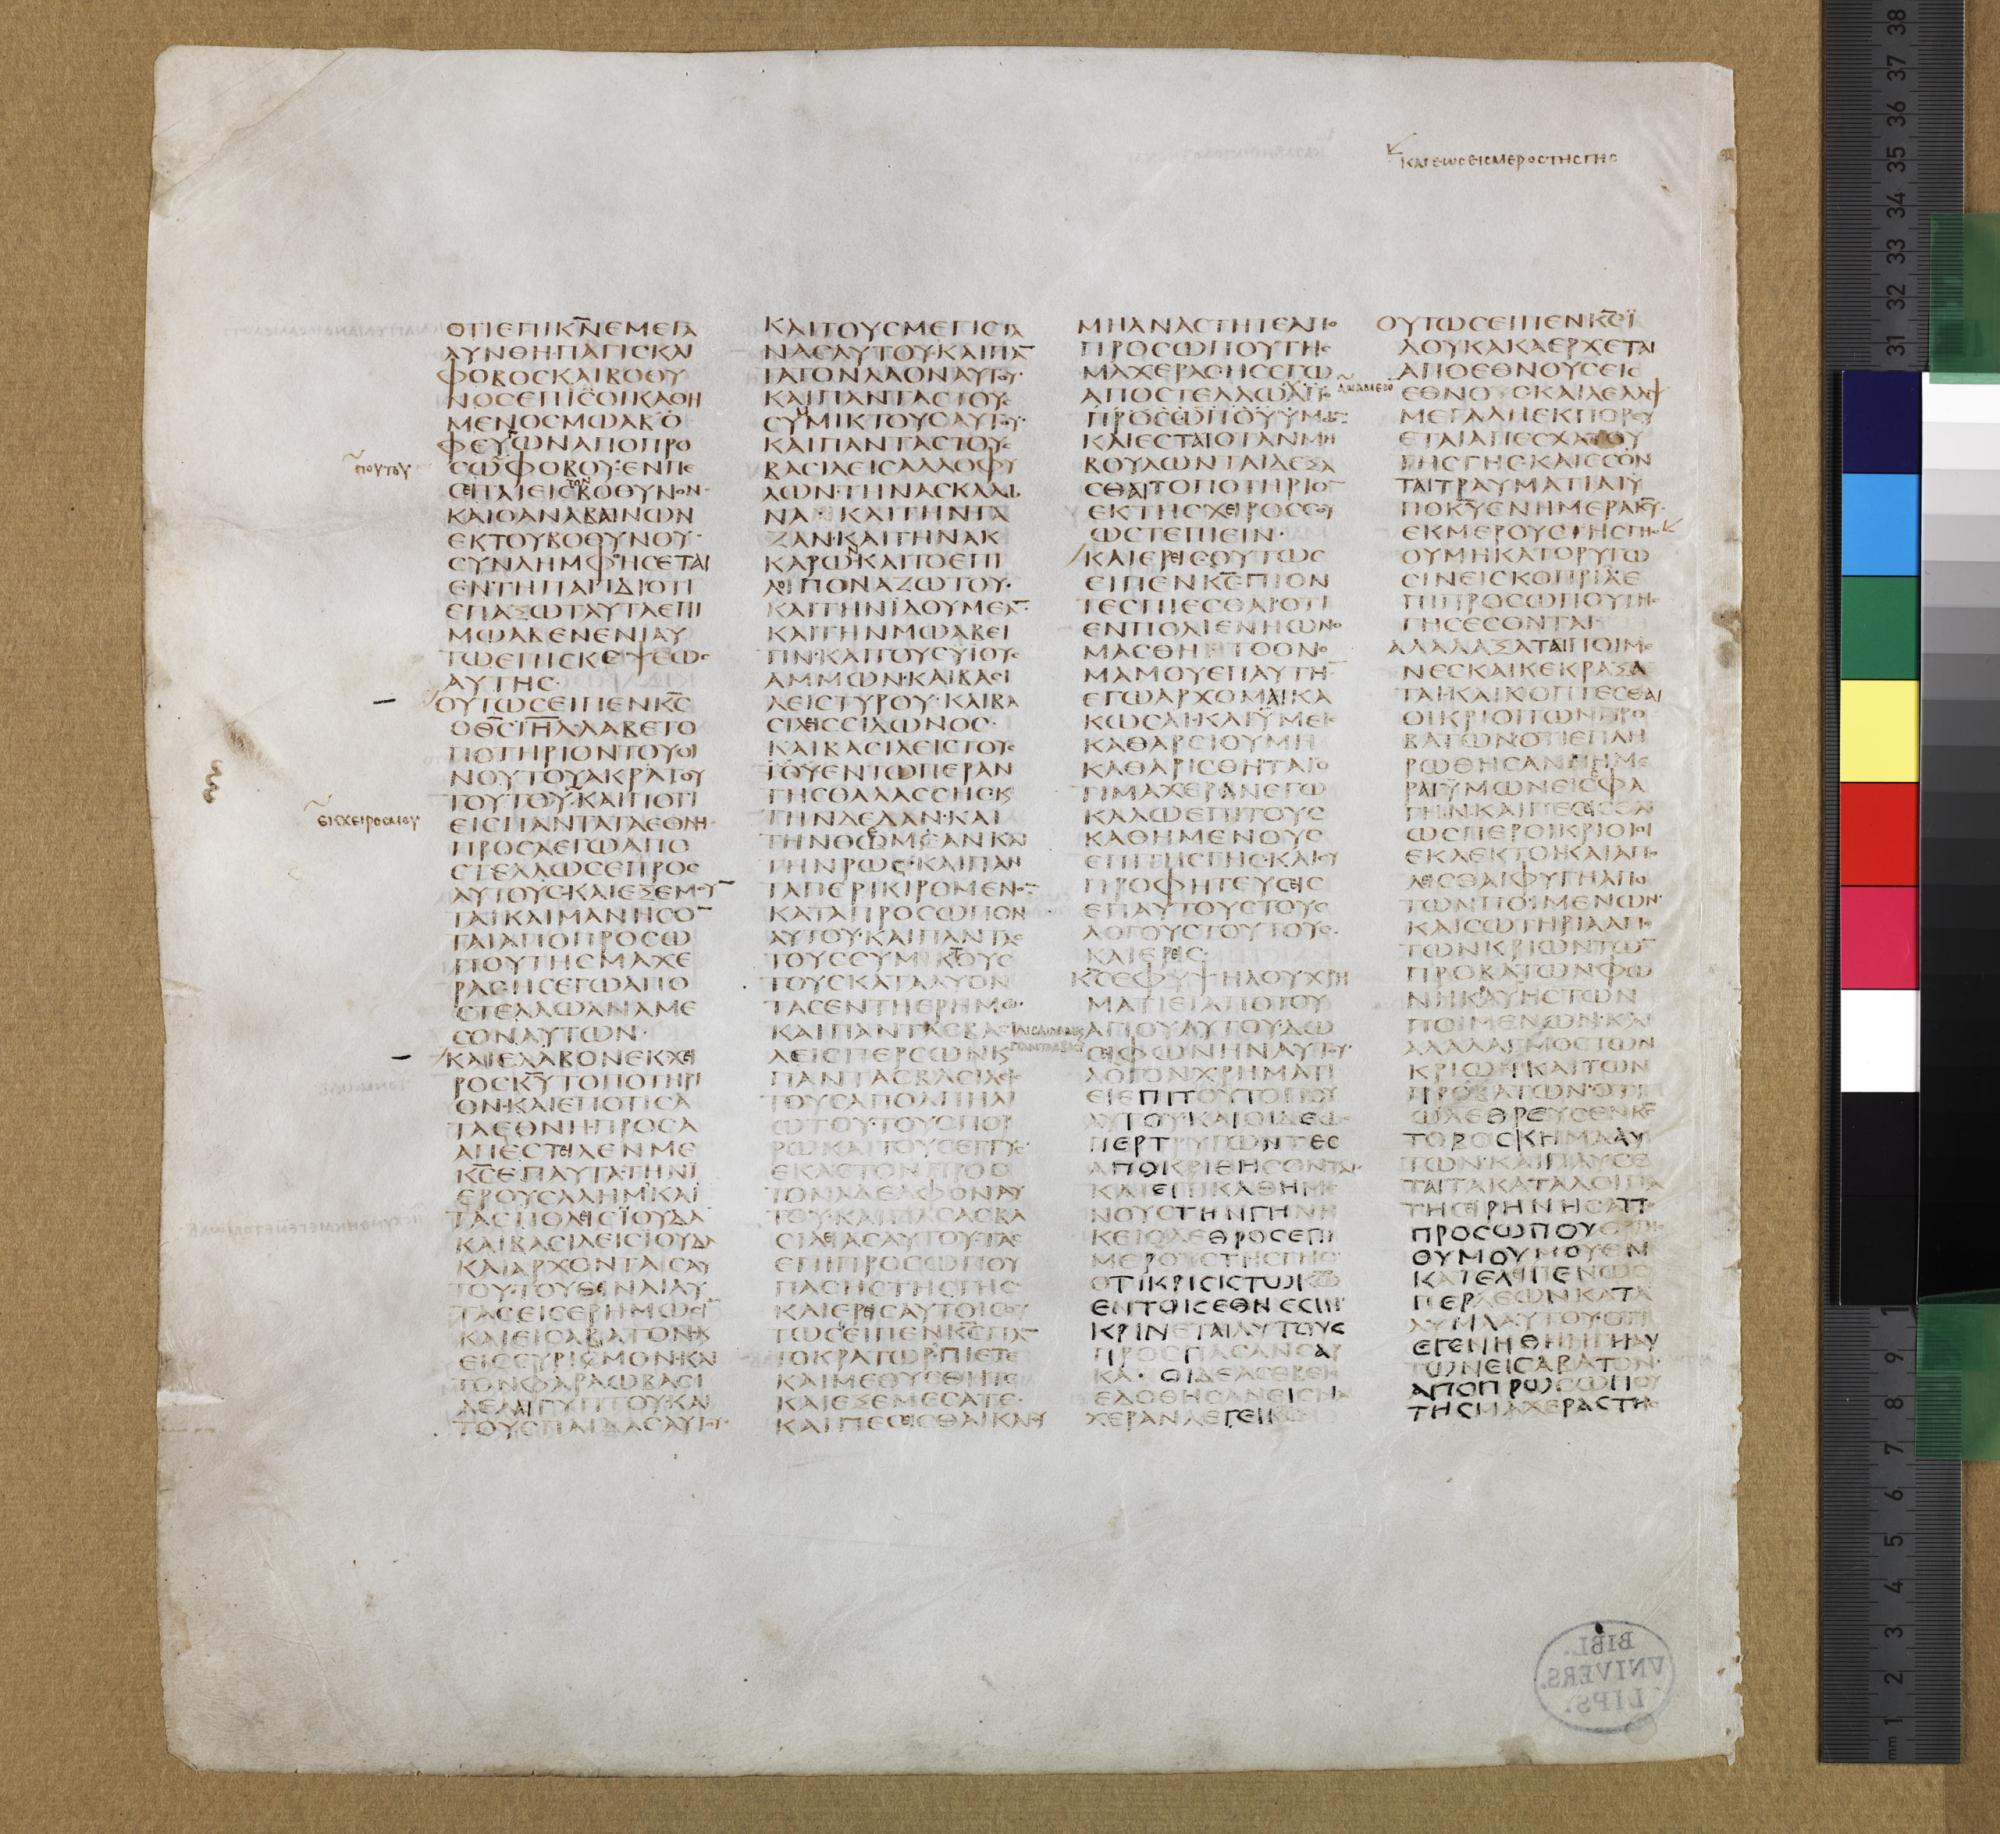 ΚΑΙΕΩϹΕΙϹΜΕΡΟϹΤΗϹΓΗϹ
ΟΤΙΕΠΙΚΝ̅ΕΜΕΓΑ
ΛΥΝΘΗ·ΠΑΓΙϹΚΑΙ
ΦΟΒΟϹΚΑΙΒΟΘΥ
ΝΟϹΕΠΙϹΟΙΚΑΘΗ
ΜΕΝΟϹΜΩΑΒΟ
ΦΕΥΓΩΝΑΠΟΠΡΟ
ΠΟΥΤΟΥ
ϹΩΦΟΒΟΥ·ΕΝΠΕ
ϹΕΙΤΑΙΕΙϹΤΟΝΒΟΘΥΝΟΝ·
ΚΑΙΟΑΝΑΒΑΙΝΩΝ
ΕΚΤΟΥΒΟΘΥΝΟΥ·
ΣΥΝΛΗΜΦΘΗϹΕΤΑΙ
ΕΝΤΗΠΑΓΙΔΙΟΤΙ
ΕΠΑΞΩΤΑΥΤΑΕΠΙ
ΜΩΑΒΕΝΕΝΙΑΥ
ΤΩΕΠΙϹΚΕΨΕΩϹ
ΑΥΤΗϹ·
ΟΥΤΩϹΕΙΠΕΝΚϹ̅
ΟΘϹ̅ΙΗΛ̅ΛΑΒΕΤΟ
ΠΟΤΗΡΙΟΝΤΟΥΟΙ
ΝΟΥΤΟΥΑΚΡΑΤΟΥ
ΤΟΥΤΟΥ·ΚΑΙΠΟΤΙ
ΕΚΧΕΙΡΟϹΜΟΥ
ΕΙϹΠΑΝΤΑΤΑΕΘΝΗ·
ΠΡΟϹΑΕΓΩΑΠΟ
ϹΤΕΛΛΩϹΕΠΡΟϹ
ΑΥΤΟΥϹ·ΚΑΙΕΞΕΜΟΥ̅
ΤΑΙΚΑΙΜΑΝΗϹΟ̅
ΤΑΙΑΠΟΠΡΟϹΩ
ΠΟΥΤΗϹΜΑΧΕ
ΡΑϹΗϹΕΓΩΑΠΟ
ϹΤΕΛΛΩΑΝΑΜΕ
ϹΟΝΑΥΤΩΝ·
ΚΑΙΕΛΑΒΟΝΕΚΧΕΙ
ΡΟϹΚΥ̅ΤΟΠΟΤΗΡΙ
ΟΝ·ΚΑΙΕΠΟΤΙϹΑ
ΤΑΕΘΝΗΠΡΟϹΑ
ΑΠΕϹΤΕΙΛΕΝΜΕ
ΚϹ̅ΕΠΑΥΤΑ·ΤΗΝΙ
ΕΡΟΥϹΑΛΗΜ·ΚΑΙ
ΤΑϹΠΟΛΕΙϹΪΟΥΔΑ
ΚΑΙΒΑϹΙΛΕΙϹΙΟΥΔΑ
ΚΑΙΑΡΧΟΝΤΑϹΑΥ
ΤΟΥ·ΤΟΥΘΕΙΝΑΙΑΥ
ΤΑϹΕΙϹΕΡΗΜΩϹΙ̅
ΚΑΙΕΙϹΑΒΑΤΟΝ·Κ
ΕΙϹϹΥΡΙϹΜΟΝ·ΚΑΙ
ΤΟΝΦΑΡΑΩΒΑϹΙ
ΛΕΑΑΙΓΥΠΤΟΥ·ΚΑΙ
ΤΟΥϹΠΑΙΔΑϹΑΥΤΟΥ·
ΚΑΙΤΟΥϹΜΕΓΙϹΤΑ
ΝΑϹΑΥΤΟΥ·ΚΑΙΠΑ̅
ΤΑΤΟΝΛΑΟΝΑΥΤΟΥ·
ΚΑΙΠΑΝΤΑϹΤΟΥϹ
ϹΥΜΙΚΤΟΥϹΑΥΤΟΥ·
ΚΑΙΠΑΝΤΑϹΤΟΥϹ
ΒΑϹΙΛΕΙϹΑΛΛΟΦΥ
ΛΩΝ·ΤΗΝΑϹΚΑΛΩ
ΝΑ·ΚΑΙΤΗΝΓΑ
ΖΑΝ·ΚΑΙΤΗΝΑΚ
ΚΑΡΩΝ·ΚΑΙΤΟΕΠΙ
ΛΟΙΠΟΝΑΖΩΤΟΥ·
ΚΑΙΤΗΝΪΔΟΥΜΕΑ̅·
ΚΑΙΤΗΝΜΩΑΒΕΙ
ΤΙΝ·ΚΑΙΤΟΥϹΥΪΟΥϹ
ΑΜΜΩΝ·ΚΑΙΒΑϹΙ
ΛΕΙϹΤΥΡΟΥ·ΚΑΙΒΑ
ϹΙΛΕΙϹϹΙΔΩΝΟϹ·
ΚΑΙΒΑϹΙΛΕΙϹΤΟΥϹ
ΤΟΥΕΝΤΩΠΕΡΑΝ
ΤΗϹΘΑΛΑϹϹΗϹ·Κ
ΤΗΝΔΕΔΑΝ·ΚΑΙ
ΤΗΝΘΩΜΕΑΝΚΑΙ
ΤΗΝΡΩϹ·ΚΑΙΠΑΝ
ΤΑΠΕΡΙΚΙΡΟΜΕΝΟ̅
ΚΑΤΑΠΡΟϹΩΠΟΝ
ΑΥΤΟΥ·ΚΑΙΠΑΝΤΑϹ
ΤΟΥϹϹΥΜΙΚΤΟΥϹ
ΤΟΥϹΚΑΤΑΛΥΟΝ
ΤΑϹΕΝΤΗΕΡΗΜΩ·
ΚΑΙΠΑΝΤΑϹΒΑϹΙ
ΛΕΙϹΠΕΡϹΩΝΚ
ΠΑΝΤΑϹΒΑϹΙΛΕΙϹ
ΤΟΥϹΑΠΟΛΙΠΗΛΙ
ΩΤΟΥ·ΤΟΥϹΠΟΡ
ΡΩΚΑΙΤΟΥϹΕΓΓΥϹ·
ΕΚΑϹΤΟΝΠΡΟϹ
ΤΟΝΑΔΕΛΦΟΝΑΥ
ΤΟΥ·ΚΑΙΠΑϹΑϹΒΑ
ϹΙΛΕΙΑϹΑΥΤΟΥ·ΤΑϹ
ΕΠΙΠΡΟϹΩΠΟΥ
ΠΑϹΗϹΤΗϹΓΗϹ·
ΚΑΙΕΡΕΙϹΑΥΤΟΙϹΟΥ
ΤΩϹΕΙΠΕΝΚϹ̅ΠΑ̅
ΤΟΚΡΑΤΩΡ·ΠΙΕΤΕ
ΚΑΙΜΕΘΥϹΘΗΤΕ
ΚΑΙΕΞΕΜΕϹΑΤΕ·
ΚΑΙΠΕϹΕΙϹΘΑΙΚΑΙΟΥ
ΜΗΑΝΑϹΤΗΤΕΑΠΟ
ΠΡΟϹΩΠΟΥΤΗϹ
ΜΑΧΕΡΑϹΗϹΕΓΩ
ΑΠΟϹΤΕΛΛΩΑΠΟ
ΑΝΑΜΕϹΟ̅
ΠΡΟϹΩΠΟΥΫΜΩ̅:
ΚΑΙΕϹΤΑΙΟΤΑΝΜΗ
ΒΟΥΛΩΝΤΑΙΔΕΞΑ
ϹΘΑΙΤΟΠΟΤΗΡΙΟ̅
ΕΚΤΗϹΧΕΙΡΟϹϹΟΥ
ΩϹΤΕΠΙΕΙΝ·
ΚΑΙΕΡΕΙϹΟΥΤΩϹ
ΕΙΠΕΝΚϹ̅ΠΙΟΝ
ΤΕϹΠΙΕϹΘΑΙΟΤΙ
ΕΝΠΟΛΙΕΝΗΩΝΟ
ΜΑϹΘΗΤΟΟΝΟ
ΜΑΜΟΥΕΠΑΥΤΗ̅
ΕΓΩΑΡΧΟΜΑΙΚΑ
ΚΩϹΑΙ·ΚΑΙΫΜΕΙϹ
ΚΑΘΑΡϹΙΟΥΜΗ
ΚΑΘΑΡΙϹΘΗΤΑΙΟ
ΤΙΜΑΧΕΡΑΝΕΓΩ
ΚΑΛΩΕΠΙΤΟΥϹ
ΚΑΘΗΜΕΝΟΥϹ
ΕΠΙΤΗϹΓΗϹ·ΚΑΙϹΥ
ΠΡΟΦΗΤΕΥϹΕΙϹ
ΕΠΑΥΤΟΥϹΤΟΥϹ
ΛΟΓΟΥϹΤΟΥΤΟΥϹ·
ΚΑΙΕΡΕΙϹ·
ΚϹ̅ΕΦΥΨΗΛΟΥΧΡΗ
ΜΑΤΙΕΙΑΠΟΤΟΥ
ΑΓΙΟΥΑΥΤΟΥΔΩ
ϹΕΙΦΩΝΗΝΑΥΤΟΥ·
ΛΟΓΟΝΧΡΗΜΑΤΙ
ΕΙΕΠΙΤΟΥΤΟΠΟΥ
ΑΥΤΟΥ·ΚΑΙΟΙΔΕΩϹ
ΠΕΡΤΡΥΓΩΝΤΕϹ
ΑΠΟΚΡΙΘΗϹΟΝΤΑΙ·
ΚΑΙΕΠΙΚΑΘΗΜΕ
ΝΟΥϹΤΗΝΓΗΝΗ
ΚΕΙΟΛΕΘΡΟϹΕΠΙ
ΜΕΡΟΥϹΤΗϹΓΗϹ·
ΟΤΙΚΡΙϹΙϹΤΩΚΩ̅
ΕΝΤΟΙϹΕΘΝΕϹΙΝ·
ΚΡΙΝΕΤΑΙΑΥΤΟΥϹ
ΠΡΟϹΠΑϹΑΝϹΑΡ
ΚΑ·ΟΙΔΕΑϹΕΒΕΙϹ
ΕΔΟΘΗϹΑΝΕΙϹΜΑ
ΧΕΡΑΝΛΕΓΕΙΚϹ̅
ΟΥΤΩϹΕΙΠΕΝΚϹ̅Ϊ
ΔΟΥΚΑΚΑΕΡΧΕΤΑΙ
ΑΠΟΕΘΝΟΥϹΕΙϹ
ΕΘΝΟΥϹΚΑΙΛΕΛΑΨ
ΜΕΓΑΛΗΕΚΠΟΡΕΥ
ΕΤΑΙΑΠΕϹΧΑΤΟΥ
ΤΗϹΓΗϹ·ΚΑΙΕϹΟΝ
ΤΑΙΤΡΑΥΜΑΤΙΑΙΫ
ΠΟΚΥ̅ΕΝΗΜΕΡΑΚΥ̅·
ΕΚΜΕΡΟΥϹΤΗϹΓΗϹ
ΟΥΜΗΚΑΤΟΡΥΓΩ
ϹΙΝΕΙϹΚΟΠΡΙΑΕ
ΠΙΠΡΟϹΩΠΟΥΤΗϹ
ΓΗϹΕϹΟΝΤΑΙ·
ΑΛΑΛΑΞΑΤΑΙΠΟΙΜΕ
ΝΕϹΚΑΙΚΕΚΡΑΞΑ
ΤΑΙ·ΚΑΙΚΟΠΤΕϹΘΑΙ
ΟΙΚΡΙΟΙΤΩΝΠΡΟ
ΒΑΤΩΝ·ΟΤΙΕΠΛΗ
ΡΩΘΗϹΑΝΑΙΗΜΕ
ΡΑΙΫΜΩΝΕΙϹϹΦΑ
ΓΗΝ·ΚΑΙΠΕϹΕΙϹΘΑΙ
ΩϹΠΕΡΟΙΚΡΙΟΙΟΙ
ΕΚΛΕΚΤΟΙ·ΚΑΙΑΠΟ
ΛΕΙϹΘΑΙΦΥΓΗΑΠΟ
ΤΩΝΠΟΙΜΕΝΩΝ·
ΚΑΙϹΩΤΗΡΙΑΑΠΟ
ΤΩΝΚΡΙΩΝΤΩ̅
ΠΡΟΒΑΤΩΝΦΩ
ΝΗΚΑΥΓΗϹΤΩΝ
ΠΟΙΜΕΝΩΝ·ΚΑΙ
ΑΛΑΛΑΓΜΟϹΤΩΝ
ΚΡΙΩΝ·ΚΑΙΤΩΝ
ΠΡΟΒΑΤΩΝ·ΟΤΙ
ΩΛΕΘΡΕΥϹΕΝΚϹ̅
ΤΟΒΟϹΚΗΜΑΑΥ
ΤΩΝ·ΚΑΙΠΑΥϹΕ
ΤΑΙΤΑΚΑΤΑΛΟΙΠΑ
ΤΗϹΕΙΡΗΝΗϹΑΠΟ
ΠΡΟϹΩΠΟΥΟΡΓΗϹ
ΘΥΜΟΥΜΟΥΕΝ
ΚΑΤΕΛΙΠΕΝΩϹ
ΠΕΡΛΕΩΝΚΑΤΑ
ΛΥΜΑΑΥΤΟΥ·ΟΤΙ
ΕΓΕΝΗΘΗΗΓΗΑΥ
ΤΩΝΕΙϹΑΒΑΤΟΝ·
ΑΠΟΠΡΟϹΩΠΟΥ
ΤΗϹΜΑΧΕΡΑϹΤΗϹ
BIBL.
VNIVERS.
LIPS.